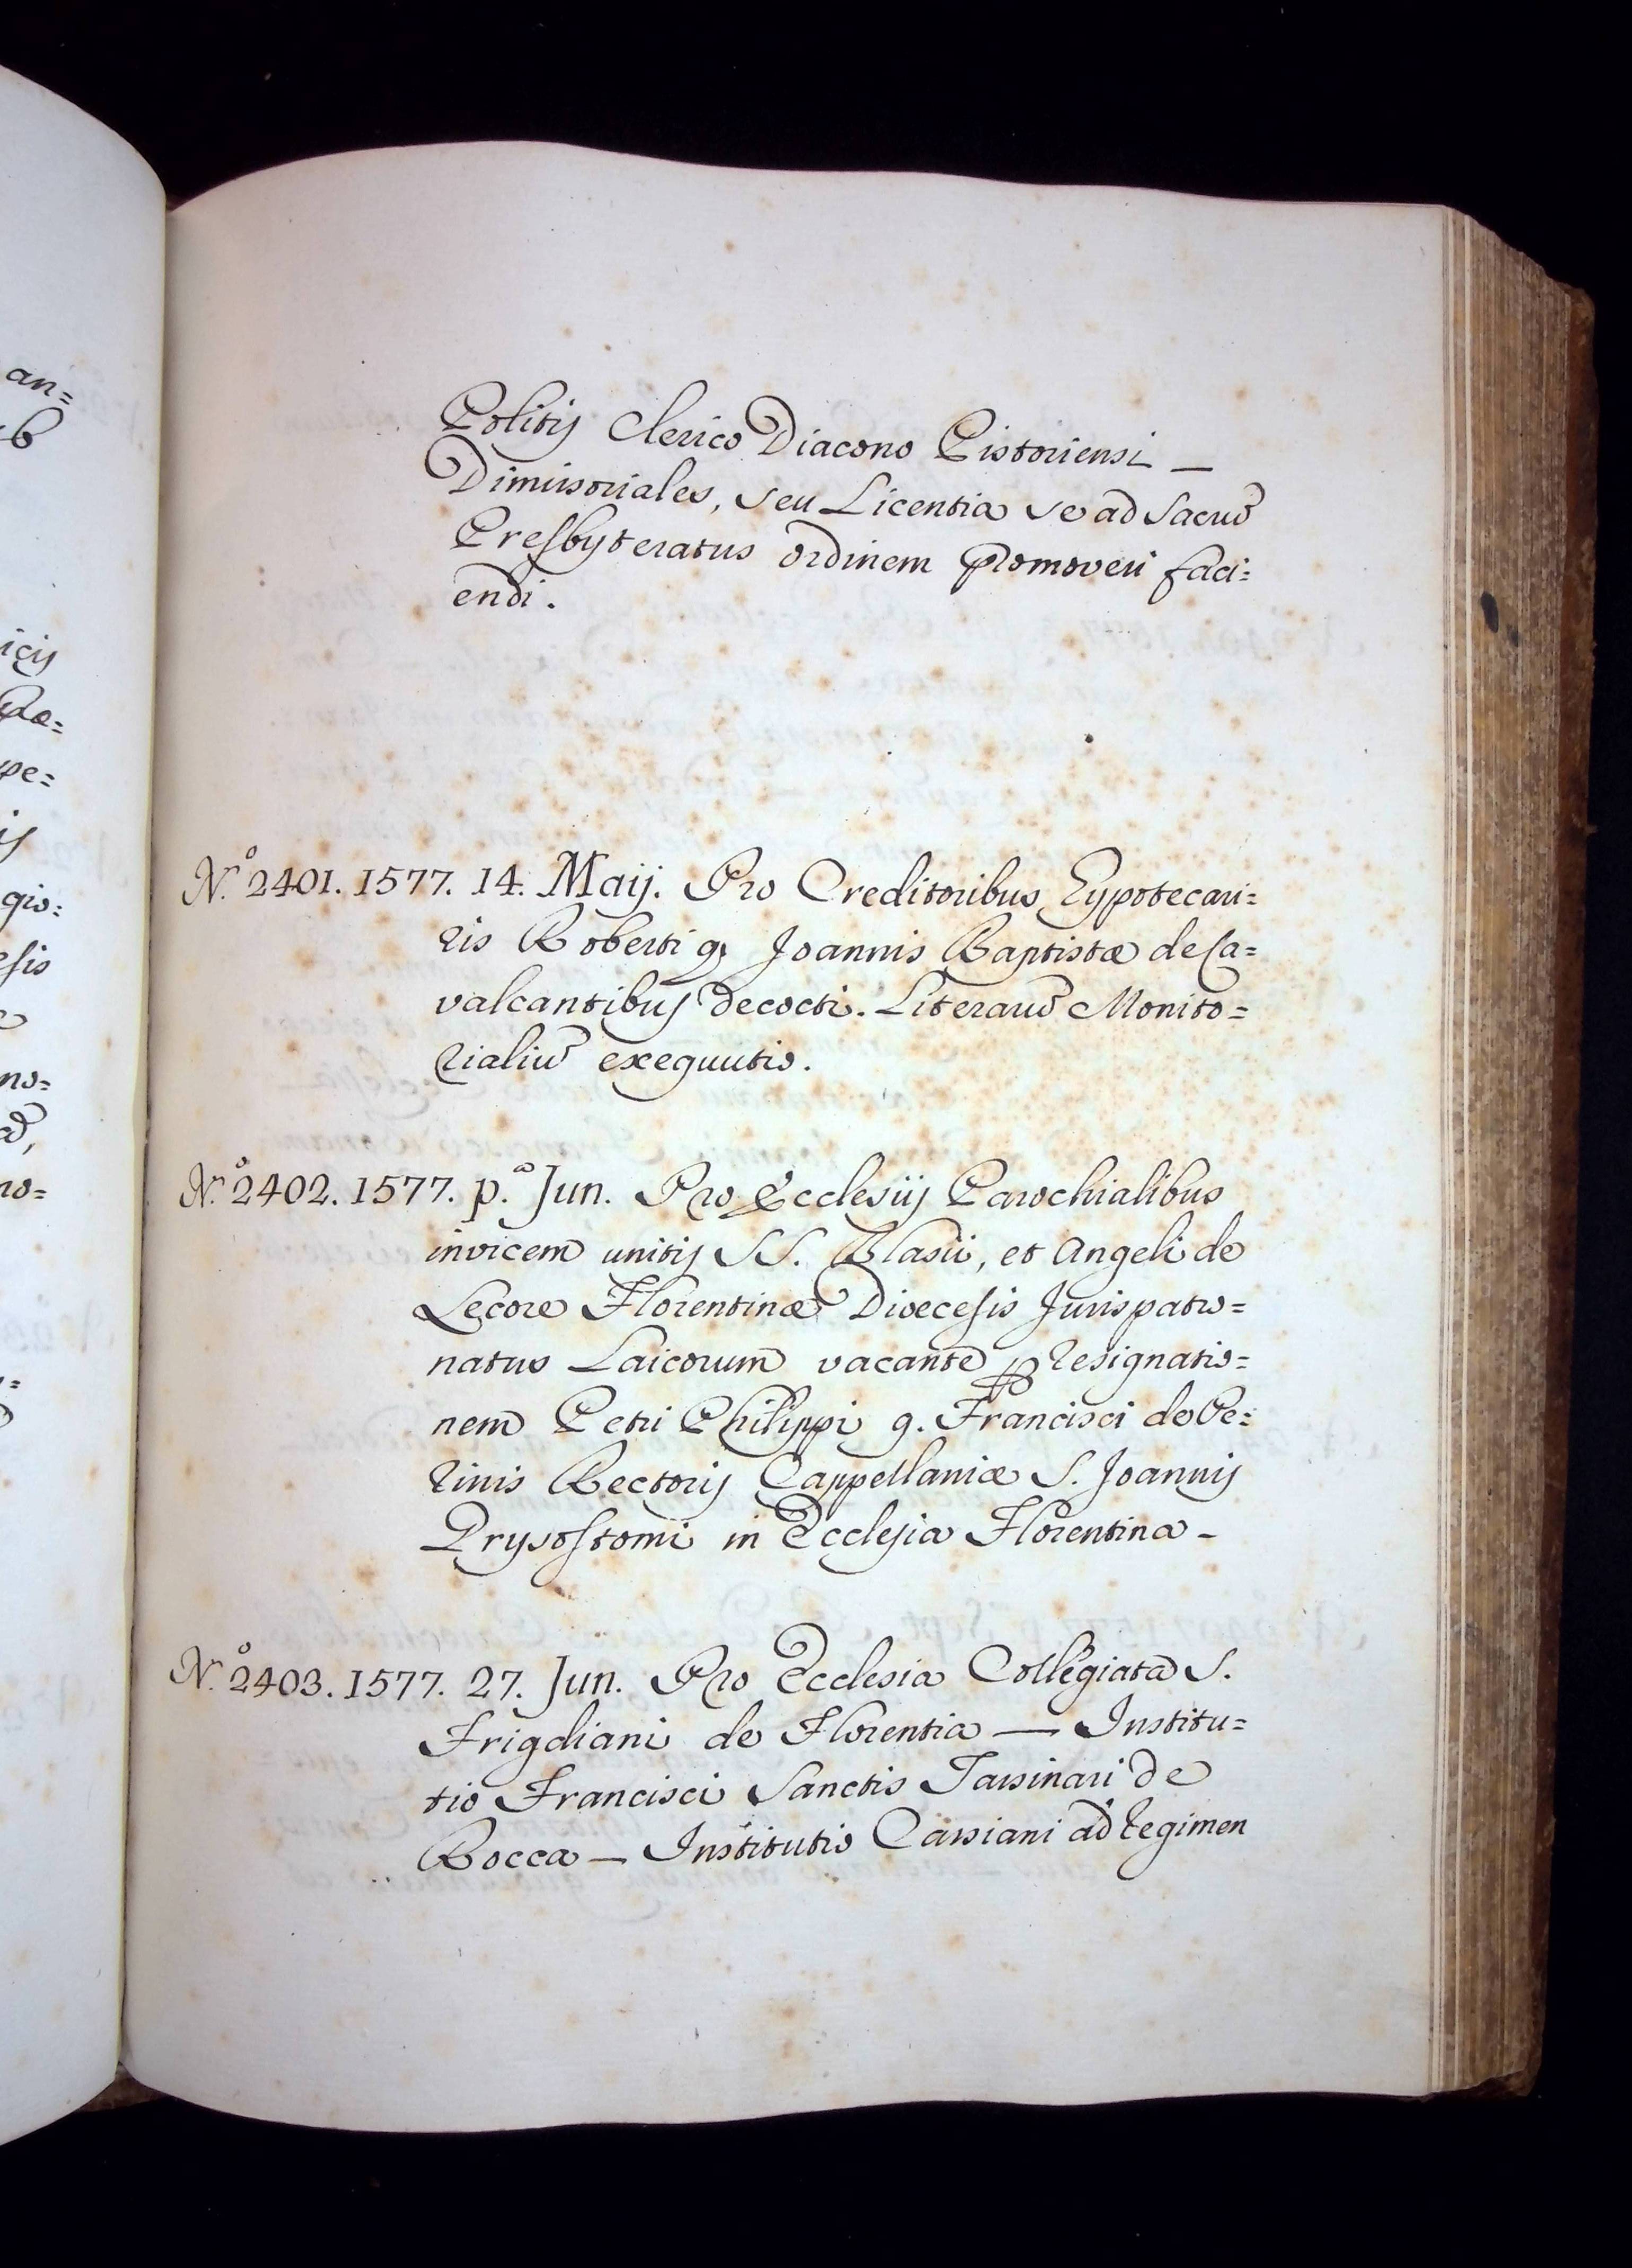 an=
b
icij
pe=
gio:
esis
no=
Politij Clerico Diacono Pistoriensi —
Dimissoriales, seu Licentia se ad Sacrũ
Presbyteratus ordinem promoveri faci=
endi.
N.º 2401. 1577. 14. Maij. Pro Creditoribus Eypotecari=
ris Roberti q. Joannis Baptistæ de Ca=
valcantibus decocti. Literarũ Monito=
rialiũ exequutio.
N.º 2402. 1577. p.ª Jun. Pro Ecclesiis Parochialibus
invicem unitis SS. Blasii, et Angeli de
Lecore Florentinæ Dioecesis Jurispatro=
natus Laicorum vacante ꝑ resignatio=
nem Petri Philippi q. Francisci de Pe=
rinis Rectoris Cappellaniæ S. Joannis
Crysostomi in Ecclesia Florentina -
N.º 2403. 1577. 27. Jun. Pro Ecclesia Collegiata S.
Frigdiani de Florentia — Institu=
tio Francisci Sanctis Tassinari de
Rocca — Institutio Cassiani ad regimen